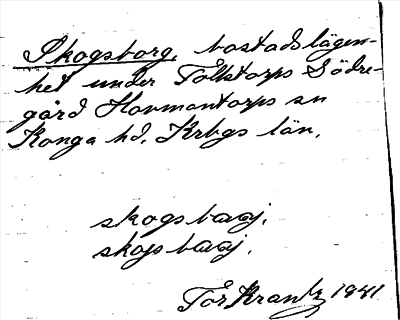 Skogsborg, bostadslägen-
het under Tolktorps Södre-
gård Hovmantorps sn
Konga hd, Krbgs län.
skogsbɷrj.
skogsbɷrj.
Tor Krantz 1941